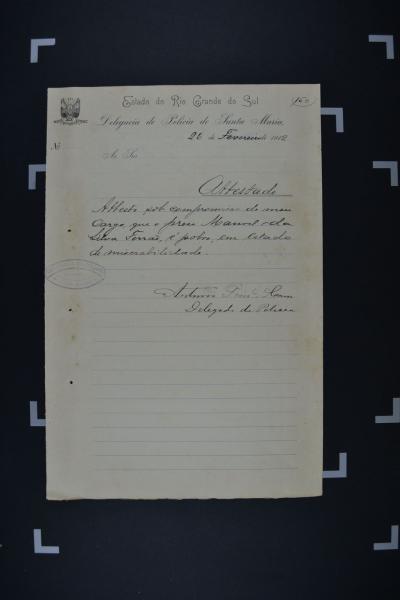 Estado do Rio Grande do Sul
Delegacia de Policia de Santa Maria,
20 de Fevereiro de 1912
Nº
Ao Snr.
Attestado
Attesto sob compromisso de meu
cargo, que o preso Manoel da
Silva Ferrão, é pobre, em estado
de miserabilidade.
Antonio
Delegado de Policia